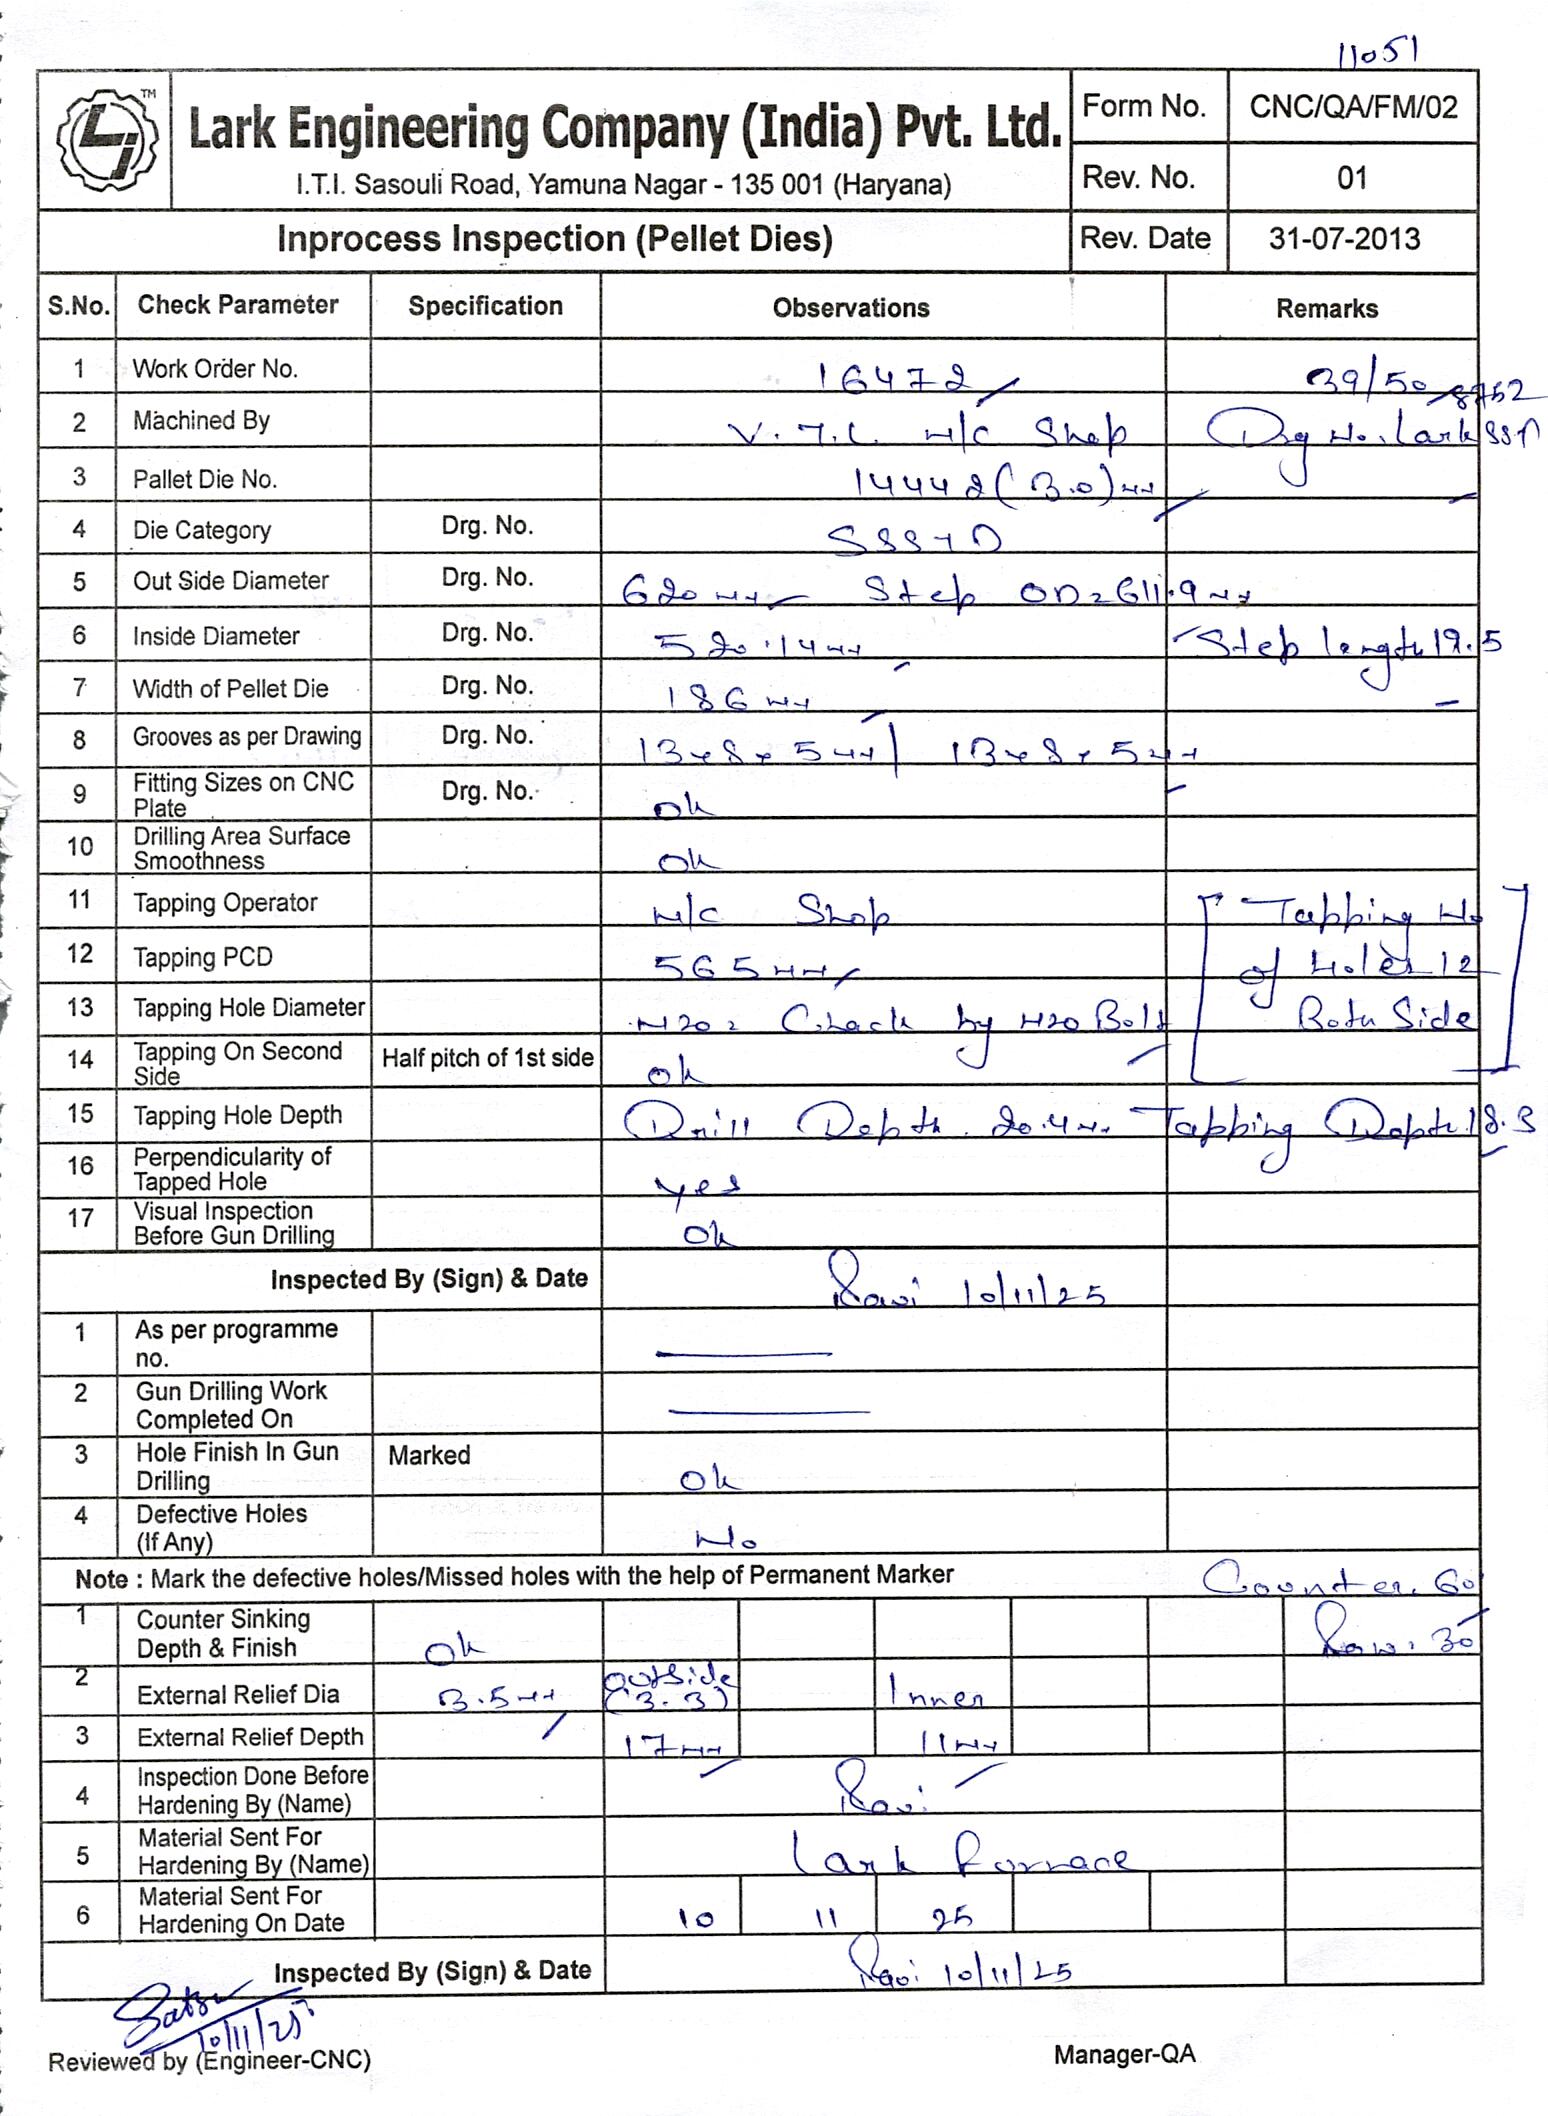 11051
TM
Lark Engineering Company (India) Pvt. Ltd.
I.T.I. Sasouli Road, Yamuna Nagar - 135 001 (Haryana)
Form No. CNC/QA/FM/02
Rev. No. 01
Inprocess Inspection (Pellet Dies) Rev. Date 31-07-2013
S.No. Check Parameter Specification Observations Remarks
1 Work Order No. 16472 39/50 8752
2 Machined By V.T.L. M/C Shop Drg No. Lark
3 Pallet Die No. 14442 (3.0) mm
4 Die Category Drg. No.
5 Out Side Diameter Drg. No. 620 mm Step OD = 611.9 mm
6 Inside Diameter Drg. No. 520.14 mm Step length 19.5
7 Width of Pellet Die Drg. No. 186 mm
8 Grooves as per Drawing Drg. No. 13 x 8 x 5 mm / 13 x 8 x 5 mm
9 Fitting Sizes on CNC Plate Drg. No. ok
10 Drilling Area Surface Smoothness ok
11 Tapping Operator M/C Shop [ Tapping No
12 Tapping PCD 565 mm of Holes 12
13 Tapping Hole Diameter M20 = Check by M20 Bolt Both Side ]
14 Tapping On Second Side Half pitch of 1st side ok
15 Tapping Hole Depth Drill Depth. 20.4 mm Tapping Depth. 18.3
16 Perpendicularity of Tapped Hole yes
17 Visual Inspection Before Gun Drilling ok
Inspected By (Sign) & Date Ravi 10/11/25
1 As per programme no.
2 Gun Drilling Work Completed On
3 Hole Finish In Gun Drilling Marked ok
4 Defective Holes (If Any) No
Note : Mark the defective holes/Missed holes with the help of Permanent Marker Counter. 60
1 Counter Sinking Depth & Finish ok 30
2 External Relief Dia 3.5 mm outside (3.3) Inner
3 External Relief Depth 17 mm 11 mm
4 Inspection Done Before Hardening By (Name) Ravi
5 Material Sent For Hardening By (Name) Lark Furnace
6 Material Sent For Hardening On Date 10 11 25
Inspected By (Sign) & Date Ravi 10/11/25
10/11/25
Reviewed by (Engineer-CNC) Manager-QA